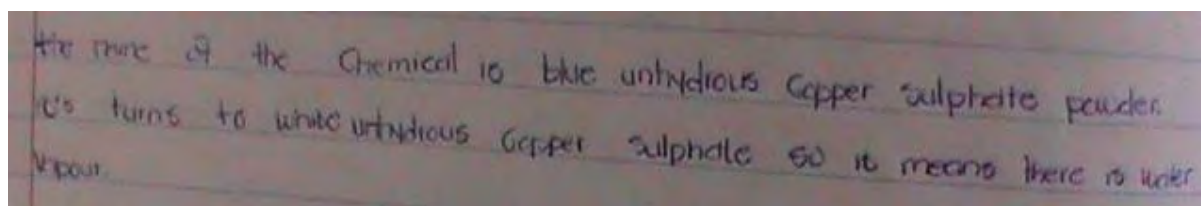 the name of the Chemical is blue unhydious Copper sulphate powder.
it's turns to white unhydious Copper sulphate so it means there is water
vapour.